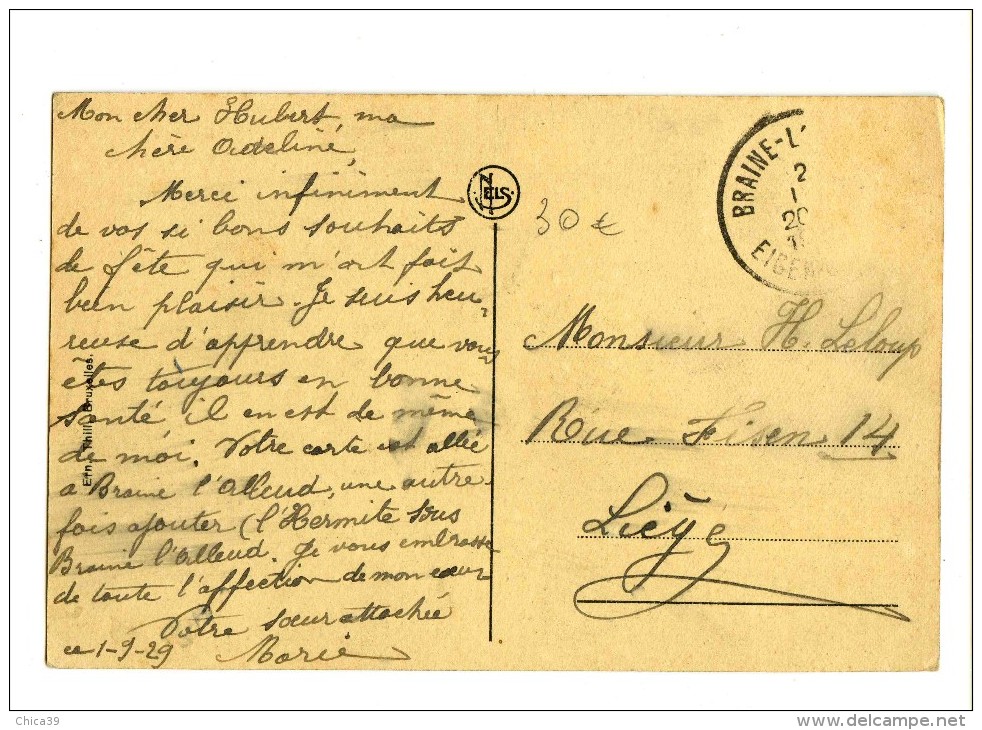 Mon cher Hubert, ma
chère Adeline,
Merci infiniment
de vos si bons souhaits
de fête qui m'ont fait
bien plaisir. Je suis heu-
reuse d'apprendre que vous
êtes toujours en bonne
santé il en est de même
de moi. Votre carte est allée
a Braine l'Alleud, une autre
fois ajouter (l'Hermite sous
Braine l'Alleud. Je vous embrasse
de toute l'affection de mon cœur
Votre sœur attachée
ce 1-9-29 Marie
Ern. Thill, Bruxelles.
NELS
30 €
BRAINE-L'
2
20
EIGEN
Monsieur H. Leloup
Rue Fisen 14
Liège
Chica39
www.delcampe.net